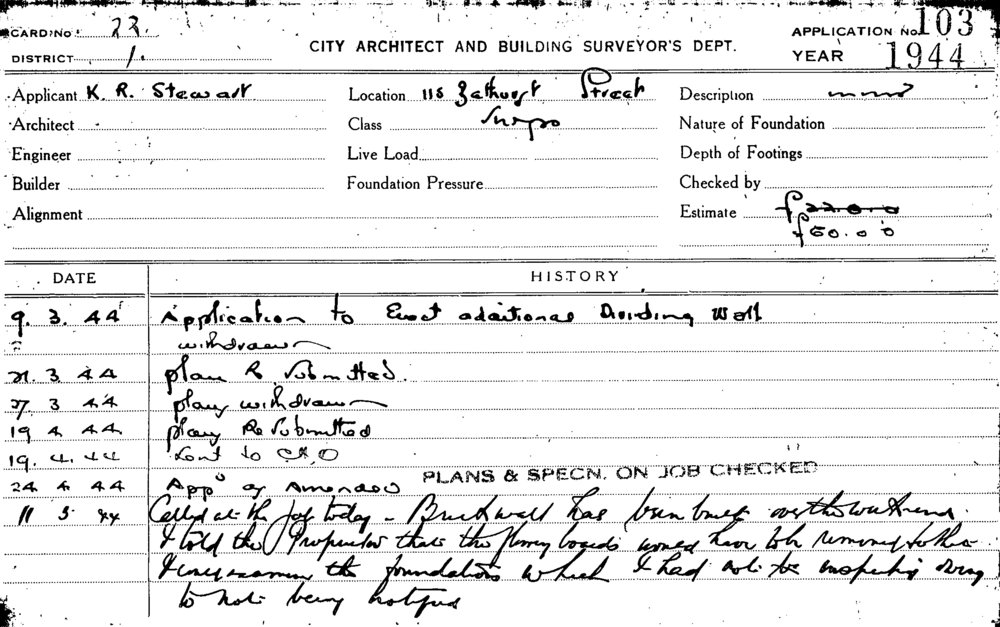 CARD No 23.
DISTRICT 1.
CITY ARCHITECT AND BUILDING SURVEYOR'S DEPT.
APPLICATION No. 103
YEAR 1944
Applicant K. R. Stewart
Location 118 Bathurst Street
Description
Architect
Class
Nature of Foundation
Engineer
Live Load
Depth of Footings
Builder
Foundation Pressure
Checked by
Alignment
Estimate £22.0.0
£50.0.0
DATE HISTORY
9. 3. 44 Application to Erect additional Dividing Wall
withdrawn
21. 3 44 plan Re Submitted.
27 3 44 plans withdrawn
19 4 44 plans ReSubmitted
19. 4. 44 Sent to
24 4 44 App as Amended PLANS & SPECN. ON JOB CHECKED
11 5 44 Called at the job today - Brick wall has been built over the weekend.
I told the Proprietor that the flooring boards would have to be removed so that
I may examine the foundations which I had not inspected owing
to not being notified